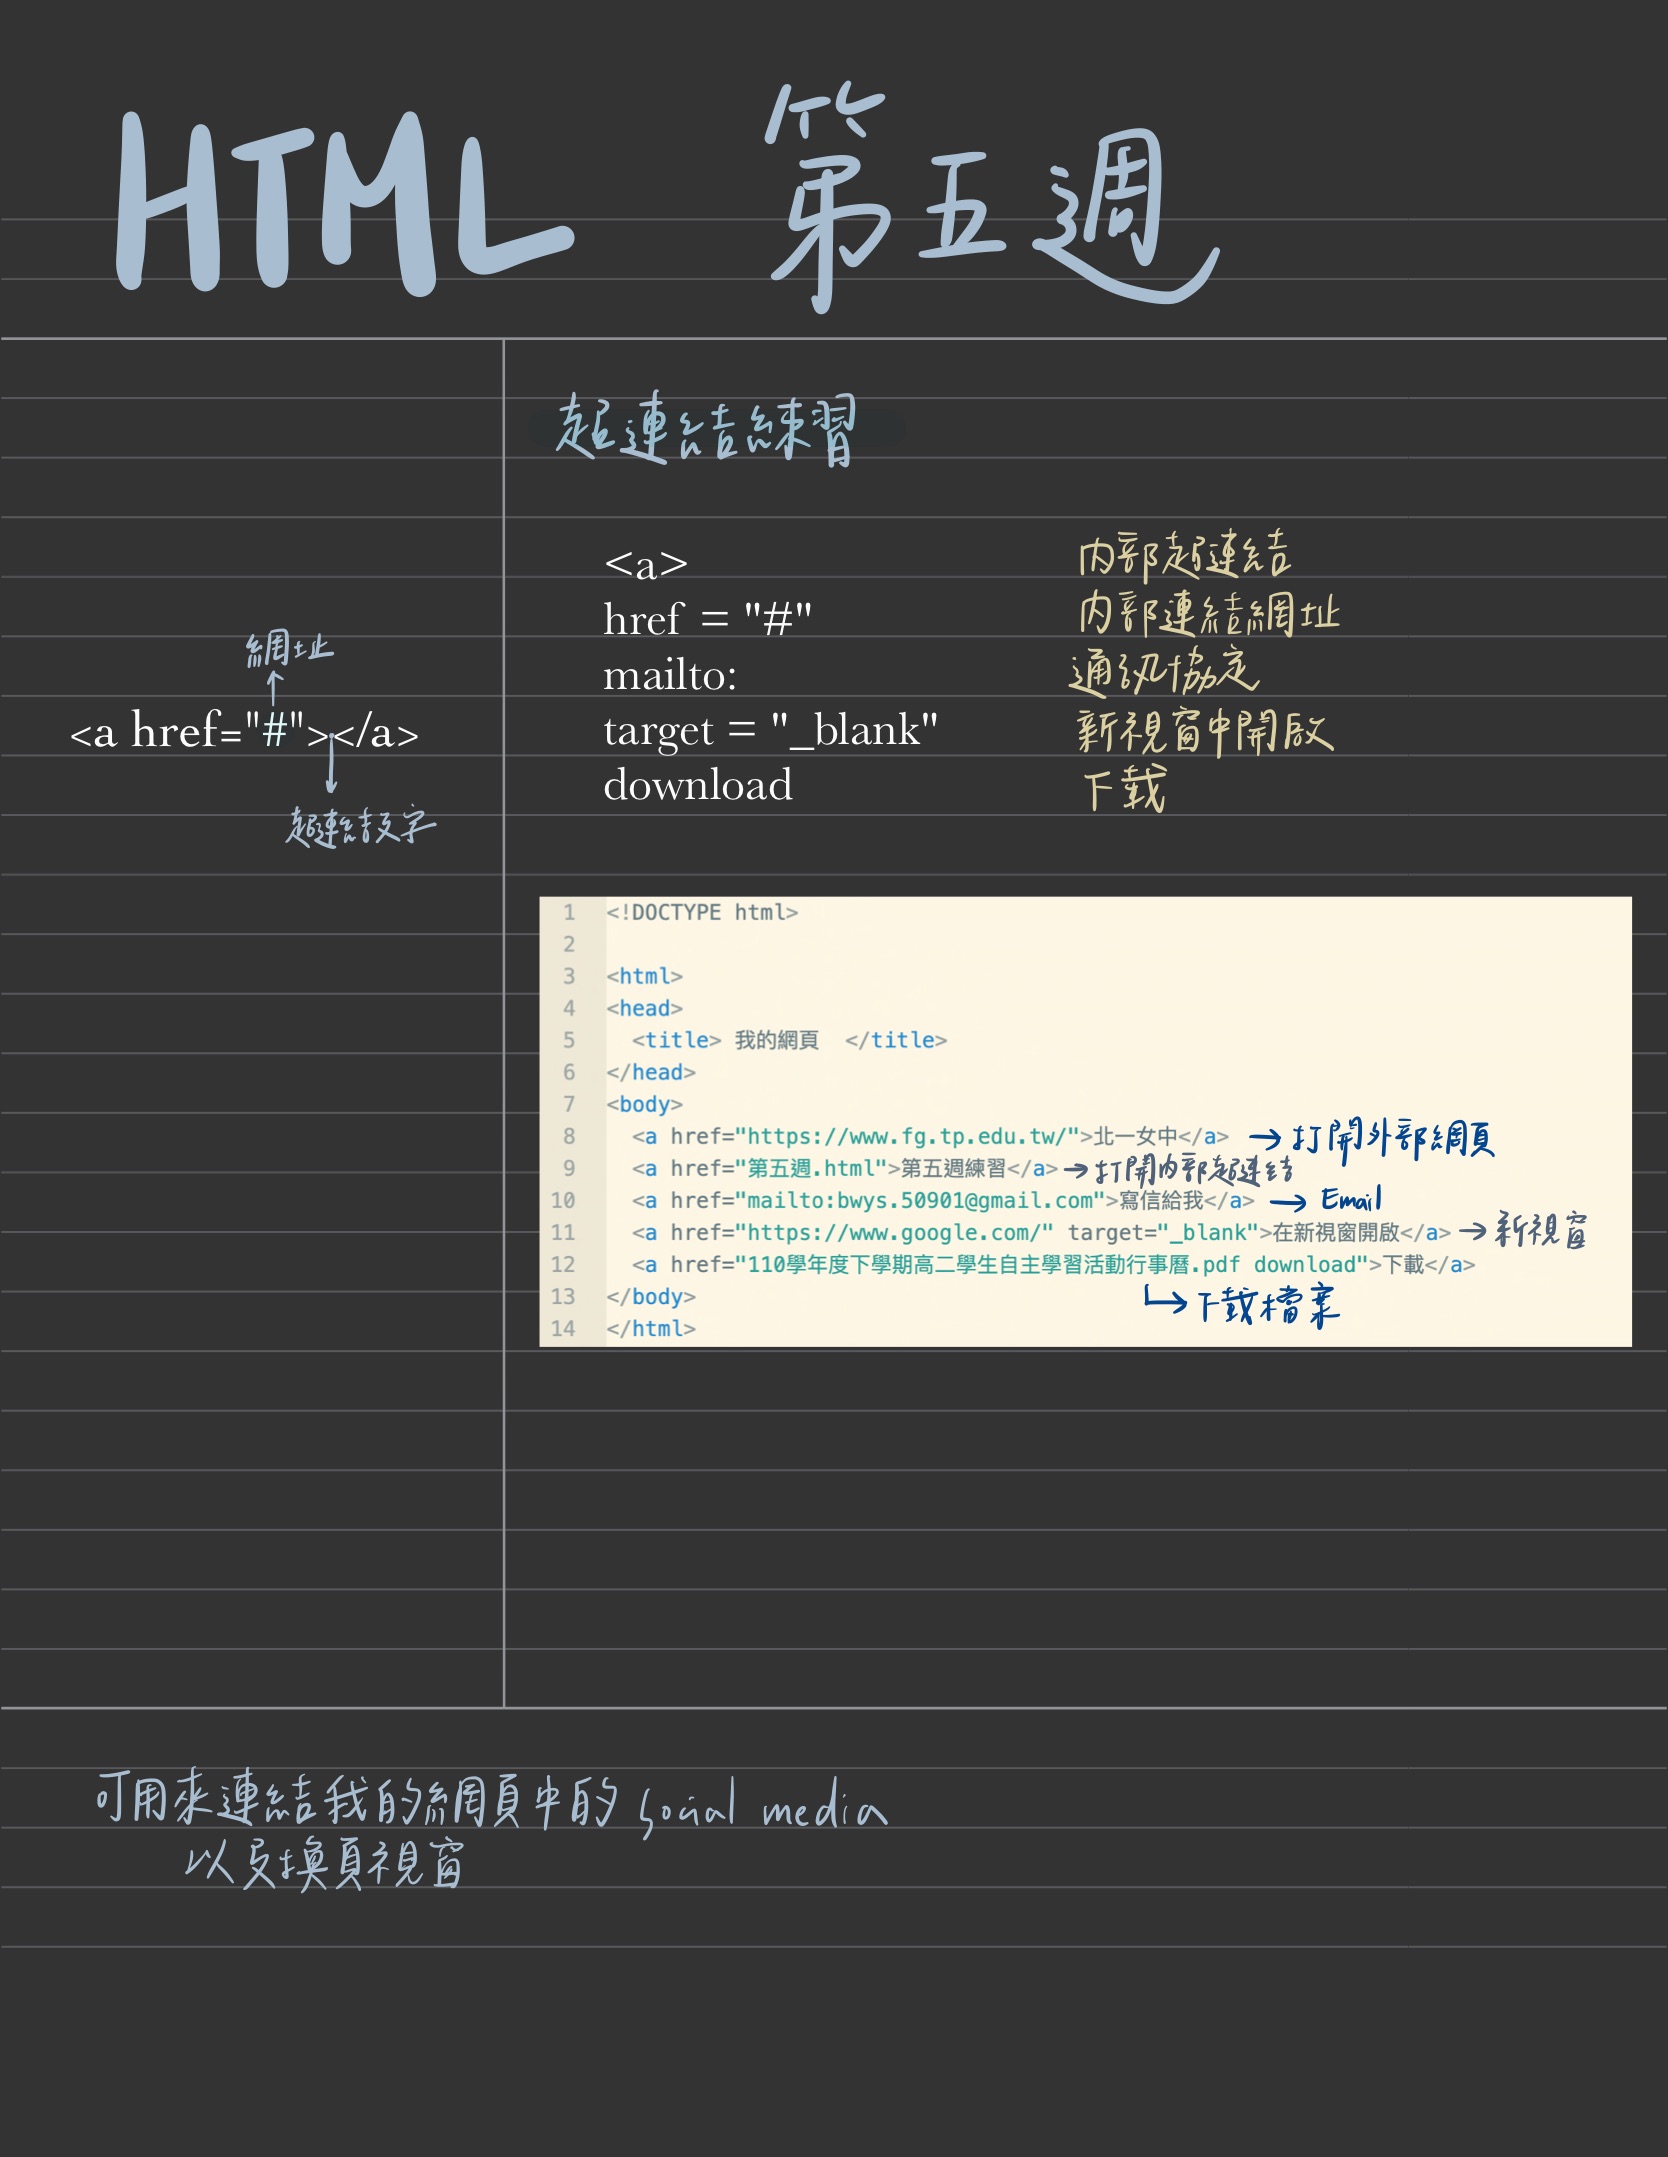 HTML 第五週
超連結練習
網址
<a href="#"></a>
超連結文字
<a> 內部超連結
href = "#" 內部連結網址
mailto: 通訊協定
target = "_blank" 新視窗中開啟
download 下載
1 <!DOCTYPE html>
2
3 <html>
4 <head>
5 <title> 我的網頁 </title>
6 </head>
7 <body>
8 <a href="https://www.fg.tp.edu.tw/">北一女中</a> → 打開外部網頁
9 <a href="第五週.html">第五週練習</a> → 打開內部超連結
10 <a href="mailto:bwys.50901@gmail.com">寫信給我</a> → Email
11 <a href="https://www.google.com/" target="_blank">在新視窗開啟</a> → 新視窗
12 <a href="110學年度下學期高二學生自主學習活動行事曆.pdf download">下載</a>
13 </body> ↳ 下載檔案
14 </html>
可用來連結我的網頁中的 social media
以及換頁視窗